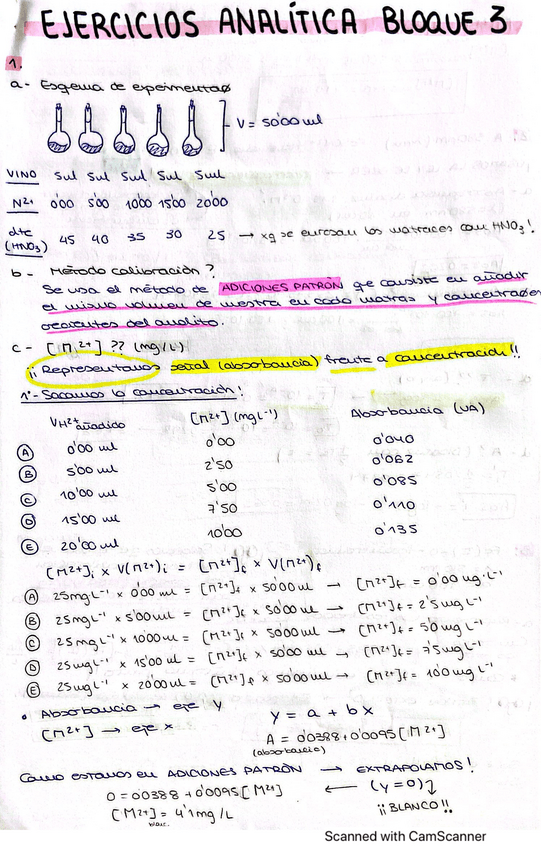 EJERCICIOS ANALÍTICA BLOQUE 3
1.
a - Esquema de experimentas
V = 50'00 ml
VINO 5ml 5ml 5ml 5ml 5ml
M2+ 0'00 5'00 10'00 15'00 20'00
dte (HNO3) 45 40 35 30 25 → xq se enrasan los matraces con HNO3!
b - Método calibración?
Se usa el método de ADICIONES PATRÓN qe consiste en añadir
el mismo volumen de muestra en cada matraz y concentraciones
crecientes del analito.
c - [M2+] ?? (mg/L)
¡¡ Representamos señal (absorbancia) frente a concentración !!
1º- Sacamos la concentración!
VM2+ añadido [M2+] (mgL-1) Absorbancia (UA)
A 0'00 ml 0'00 0'040
B 5'00 ml 2'50 0'062
C 10'00 ml 5'00 0'085
D 15'00 ml 7'50 0'110
E 20'00 ml 10'00 0'135
[M2+]i x V(M2+)i = [M2+]f x V(M2+)f
A 25mgL-1 x 0'00 ml = [M2+]f x 50'00 ml → [M2+]f = 0'00 mg·L-1
B 25mgL-1 x 5'00 ml = [M2+]f x 50'00 ml → [M2+]f = 2'5 mg L-1
C 25 mgL-1 x 10'00 ml = [M2+]f x 50'00 ml → [M2+]f = 5'0 mg L-1
D 25 mgL-1 x 15'00 ml = [M2+]f x 50'00 ml → [M2+]f = 7'5 mg L-1
E 25mgL-1 x 20'00 ml = [M2+]f x 50'00 ml → [M2+]f = 10'0 mg L-1
• Absorbancia → eje Y
[M2+] → eje x
y = a + bx
A = 0'0388 + 0'0095 [M2+]
(absorbancia)
Como estamos en ADICIONES PATRÓN → EXTRAPOLAMOS!
0 = 0'0388 + 0'0095 [M2+] ← (y = 0)
[M2+] = 4'1 mg/L ¡¡ BLANCO !!
Scanned with CamScanner